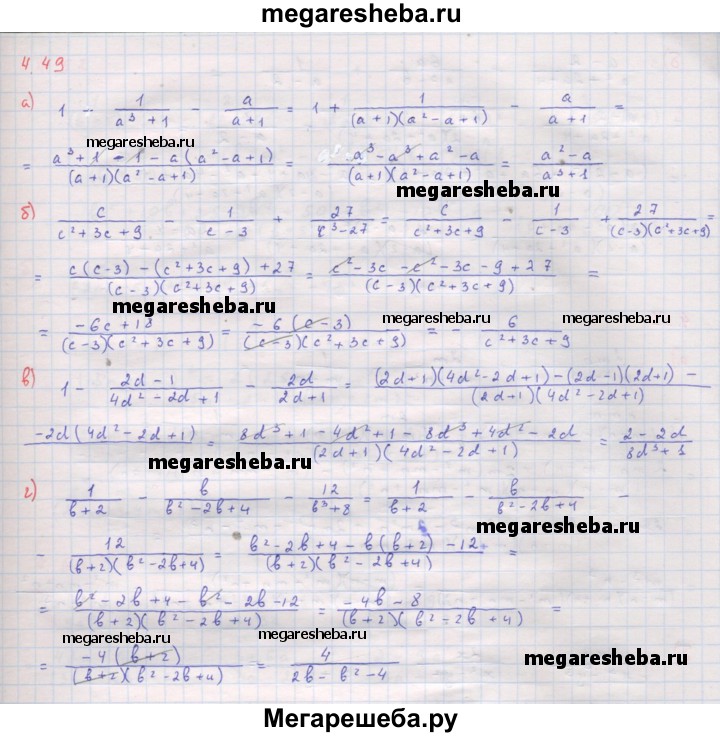 megaresheba.ru
4.49
а) 1 - 1/(a³+1) - a/(a+1) = 1 + 1/((a+1)(a²-a+1)) - a/(a+1) =
megaresheba.ru
= (a³+1-1-a(a²-a+1))/((a+1)(a²-a+1)) = (a³-a³+a²-a)/((a+1)(a²-a+1)) = (a²-a)/(a³+1)
megaresheba.ru
б) c/(c²+3c+9) - 1/(c-3) + 27/(c³-27) = c/(c²+3c+9) - 1/(c-3) + 27/((c-3)(c²+3c+9)) =
megaresheba.ru
= (c(c-3)-(c²+3c+9)+27)/((c-3)(c²+3c+9)) = (c²-3c-c²-3c-9+27)/((c-3)(c²+3c+9)) =
megaresheba.ru
megaresheba.ru
= (-6c+18)/((c-3)(c²+3c+9)) = (-6(c-3))/((c-3)(c²+3c+9)) = - 6/(c²+3c+9)
в) 1 - (2d-1)/(4d²-2d+1) - 2d/(2d+1) = ((2d+1)(4d²-2d+1)-(2d-1)(2d+1)-)/((2d+1)(4d²-2d+1))
(-2d(4d²-2d+1))/ = (8d³+1-4d²+1-8d³+4d²-2d)/((2d+1)(4d²-2d+1)) = (2-2d)/(8d³+1)
megaresheba.ru
г) 1/(b+2) - b/(b²-2b+4) - 12/(b³+8) = 1/(b+2) - b/(b²-2b+4) -
megaresheba.ru
- 12/((b+2)(b²-2b+4)) = (b²-2b+4-b(b+2)-12)/((b+2)(b²-2b+4)) =
= (b²-2b+4-b²-2b-12)/((b+2)(b²-2b+4)) = (-4b-8)/((b+2)(b²-2b+4)) =
megaresheba.ru
megaresheba.ru
megaresheba.ru
= (-4(b+2))/((b+2)(b²-2b+4)) = 4/(2b-b²-4)
Мегарешеба.ру